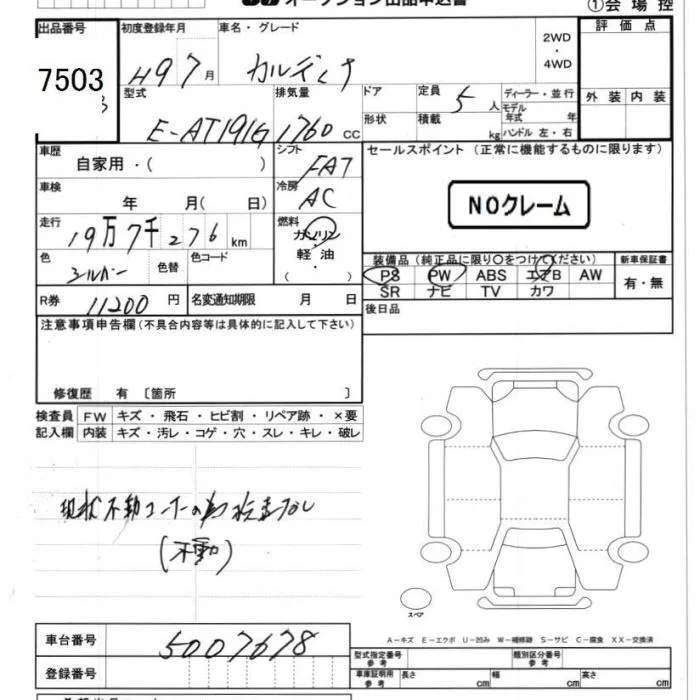 オークション出品申込書
①会場控
出品番号 初度登録年月 車名・グレード 評価点
7503 H9 7月 カルディナ 2WD・4WD
型式 排気量 ドア 定員 5人 ディーラー・並行 外装 内装
E-AT191G 1760cc 形状 積載 kg モデル年式 年 ハンドル 左・右
車歴 自家用・( ) シフト FAT セールスポイント(正常に機能するものに限ります)
車検 年 月( 日) 冷房 AC NOクレーム
走行 19万7千276km 燃料 ガソリン・軽油・( )
色 シルバー 色替 色コード
装備品(純正品に限り○をつけてください) 新車保証書
PS PW ABS エアB AW 有・無
SR ナビ TV カワ
R券 11200円 名変通知期限 月 日 後日品
注意事項申告欄(不具合内容等は具体的に記入して下さい)
修復歴 有〔箇所 〕
検査員 FW キズ・飛石・ヒビ割・リペア跡・×要
記入欄 内装 キズ・汚レ・コゲ・穴・スレ・キレ・破レ
現状不動コーナーの為検査なし
(不動)
スペア
A-キズ E-エクボ U-凹み W-補修跡 S-サビ C-腐食 XX-交換済
車台番号 5007678
型式指定番号 参考 類別区分番号 参考
登録番号 車庫証明用 参考 長さ cm 幅 cm 高さ cm